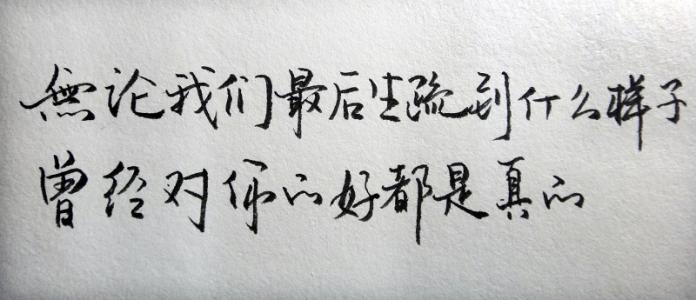 無论我们最后生疏到什么样子
曾经对你的好都是真的